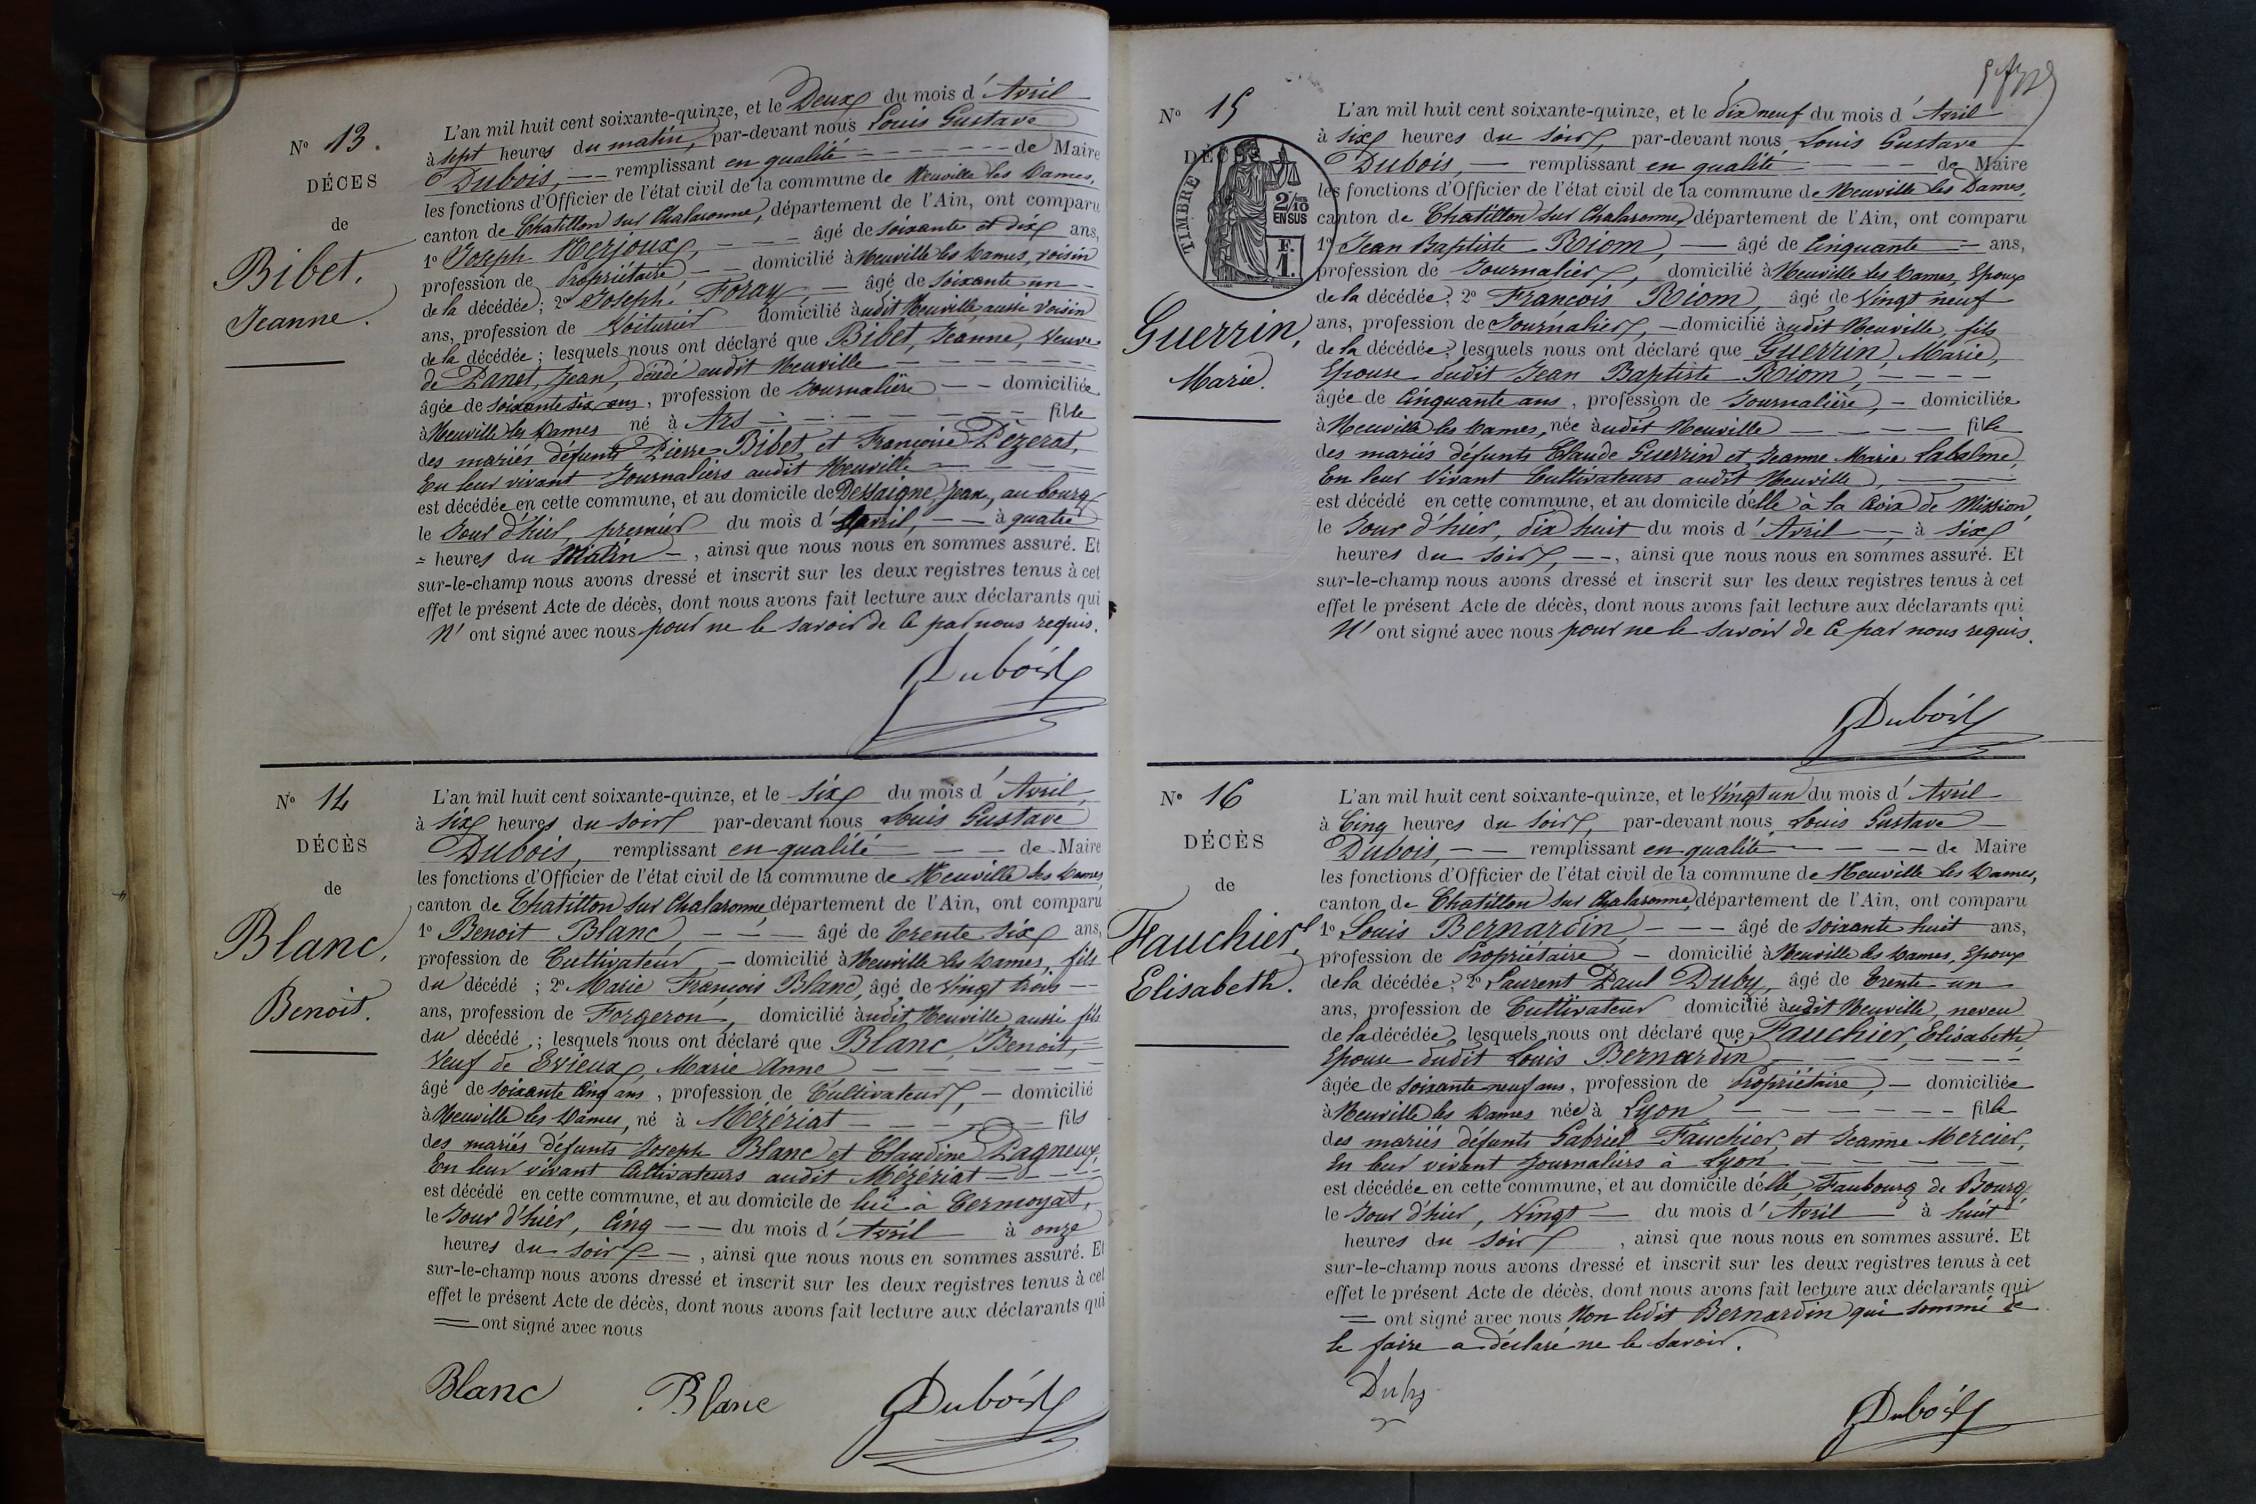 N° 13.
DÉCES
de
Bibet,
Jeanne.
L'an mil huit cent soixante-quinze, et le Deux du mois d'Avril
à sept heures du matin, par-devant nous Louis Gustave
Dubois, remplissant en qualité de Maire
les fonctions d'Officier de l'état civil de la commune de Neuville les Dames,
canton de Chatillon sur Chalaronne, département de l'Ain, ont comparu
1° Joseph Merjoux, âgé de soixante et dix ans,
profession de Propriétaire domicilié à Neuville les Dames, voisin
de la décédée; 2° Joseph Foray, âgé de soixante un
ans, profession de Voiturier domicilié audit Neuville aussi voisin
de la décédée; lesquels nous ont déclaré que Bibet, Jeanne, Veuve
de Panet, Jean, décédé audit Neuville
âgée de soixante six ans, profession de Journalière domiciliée
à Neuville les Dames né à Ars fille
des mariés défunts Pierre Bibet et Françoise Pézerat,
En leur vivant Journaliers audit Neuville
est décédée en cette commune, et au domicile de Dessaigne, Jean, au bourg
le Jour d'hier, premier du mois d'Avril, à quatre
= heures du Matin, ainsi que nous nous en sommes assuré. Et
sur-le-champ nous avons dressé et inscrit sur les deux registres tenus à cet
effet le présent Acte de décès, dont nous avons fait lecture aux déclarants qui
N'ont signé avec nous pour ne le savoir de ce par nous requis.
Dubois
N° 14
DÉCÈS
de
Blanc,
Benoit.
L'an mil huit cent soixante-quinze, et le six du mois d'Avril,
à six heures du soir par-devant nous Louis Gustave
Dubois, remplissant en qualité de Maire
les fonctions d'Officier de l'état civil de la commune de Neuville les Dames,
canton de Chatillon sur Chalaronne, département de l'Ain, ont comparu
1° Benoit Blanc, âgé de trente six ans,
profession de Cultivateur domicilié à Neuville les Dames, fils
du décédé; 2° Marie François Blanc, âgé de vingt trois
ans, profession de Forgeron, domicilié audit Neuville aussi fils
du décédé; lesquels nous ont déclaré que Blanc, Benoit,
Veuf de Evieux, Marie Anne
âgé de soixante cinq ans, profession de Cultivateur, domicilié
à Neuville les Dames, né à Mézériat fils
des mariés défunts Joseph Blanc et Claudine Pagneux,
En leur vivant Cultivateurs audit Mézériat
est décédé en cette commune, et au domicile de lui à Cermoyat,
le Jour d'hier, cinq du mois d'Avril à onze
heures du soir, ainsi que nous nous en sommes assuré. Et
sur-le-champ nous avons dressé et inscrit sur les deux registres tenus à cet
effet le présent Acte de décès, dont nous avons fait lecture aux déclarants qui
= ont signé avec nous
Blanc Blanc Dubois
N° 15
DÉCÈS
TIMBRE
2/10
EN SUS
F.
1.
Guerrin,
Marie.
L'an mil huit cent soixante-quinze, et le dix neuf du mois d'Avril
à six heures du soir, par-devant nous Louis Gustave
Dubois, remplissant en qualité de Maire
les fonctions d'Officier de l'état civil de la commune de Neuville les Dames,
canton de Chatillon sur Chalaronne, département de l'Ain, ont comparu
1° Jean Baptiste Riom, âgé de Cinquante ans,
profession de Journalier, domicilié à Neuville les Dames, Epoux
de la décédée; 2° François Riom, âgé de vingt neuf
ans, profession de Journalier, domicilié audit Neuville, fils
de la décédée; lesquels nous ont déclaré que Guerrin, Marie,
Epouse dudit Jean Baptiste Riom,
âgée de Cinquante ans, profession de Journalière, domiciliée
à Neuville les Dames, née audit Neuville fille
des mariés défunts Claude Guerrin et Jeanne Marie Labalme,
En leur Vivant Cultivateurs audit Neuville,
est décédé en cette commune, et au domicile d'elle à la Croix de Mission,
le Jour d'hier, dix huit du mois d'Avril, à six
heures du soir, ainsi que nous nous en sommes assuré. Et
sur-le-champ nous avons dressé et inscrit sur les deux registres tenus à cet
effet le présent Acte de décès, dont nous avons fait lecture aux déclarants qui
N'ont signé avec nous pour ne le savoir de ce par nous requis.
Dubois
N° 16
DÉCÈS
de
Fauchier,
Elisabeth.
L'an mil huit cent soixante-quinze, et le Vingt un du mois d'Avril
à Cinq heures du soir, par-devant nous, Louis Gustave
Dubois, remplissant en qualité de Maire
les fonctions d'Officier de l'état civil de la commune de Neuville les Dames,
canton de Chatillon sur Chalaronne, département de l'Ain, ont comparu
1° Louis Bernardin, âgé de soixante huit ans,
profession de Propriétaire domicilié à Neuville les Dames, Epoux
de la décédée; 2° Laurent Paul Duby, âgé de trente un
ans, profession de Cultivateur domicilié audit Neuville, neveu
de la décédée, lesquels nous ont déclaré que Fauchier, Elisabeth,
Epouse dudit Louis Bernardin
âgée de soixante neuf ans, profession de Propriétaire, domiciliée
à Neuville les Dames née à Lyon fille
des mariés défunts Gabriel Fauchier et Jeanne Mercier,
En leur vivant Journaliers à Lyon
est décédée en cette commune, et au domicile d'elle, Faubourg de Bourg,
le Jour d'hier, Vingt du mois d'Avril à huit
heures du soir, ainsi que nous nous en sommes assuré. Et
sur-le-champ nous avons dressé et inscrit sur les deux registres tenus à cet
effet le présent Acte de décès, dont nous avons fait lecture aux déclarants qui
= ont signé avec nous Non ledit Bernardin qui sommé de
le faire a déclaré ne le savoir.
Duby
Dubois